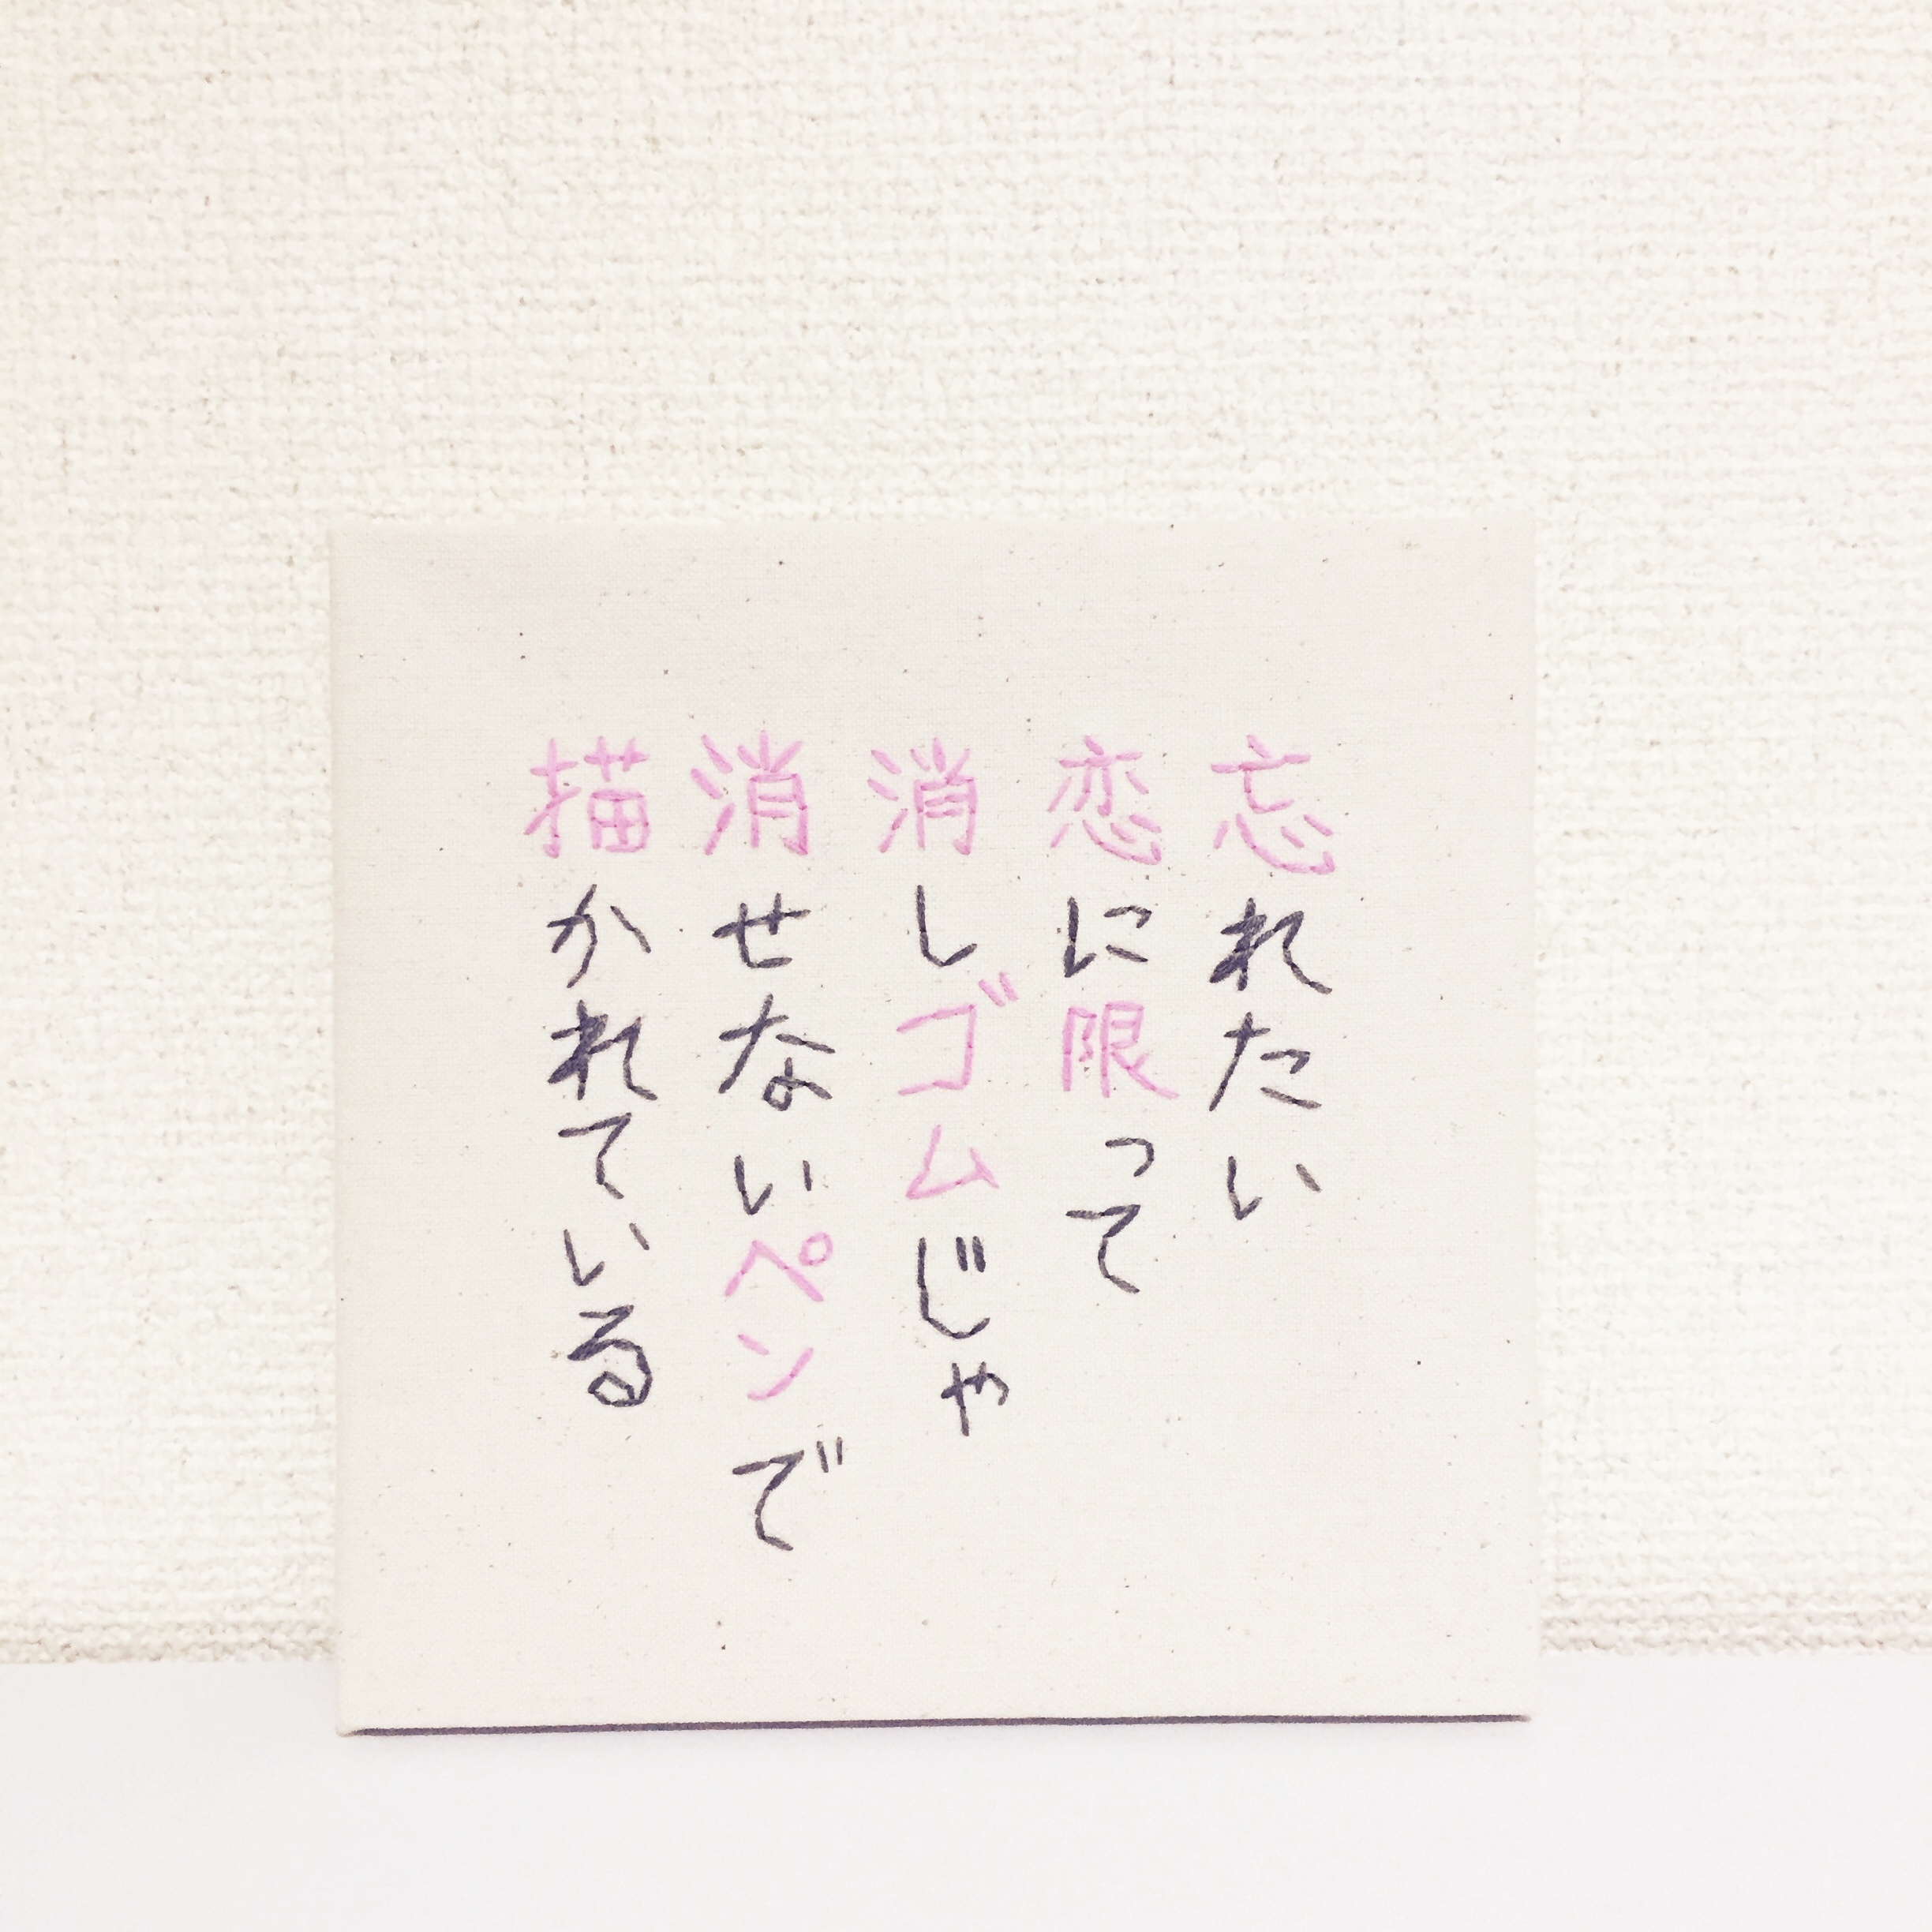 忘れたい
恋に限って
消しゴムじゃ
消せないペンで
描かれている